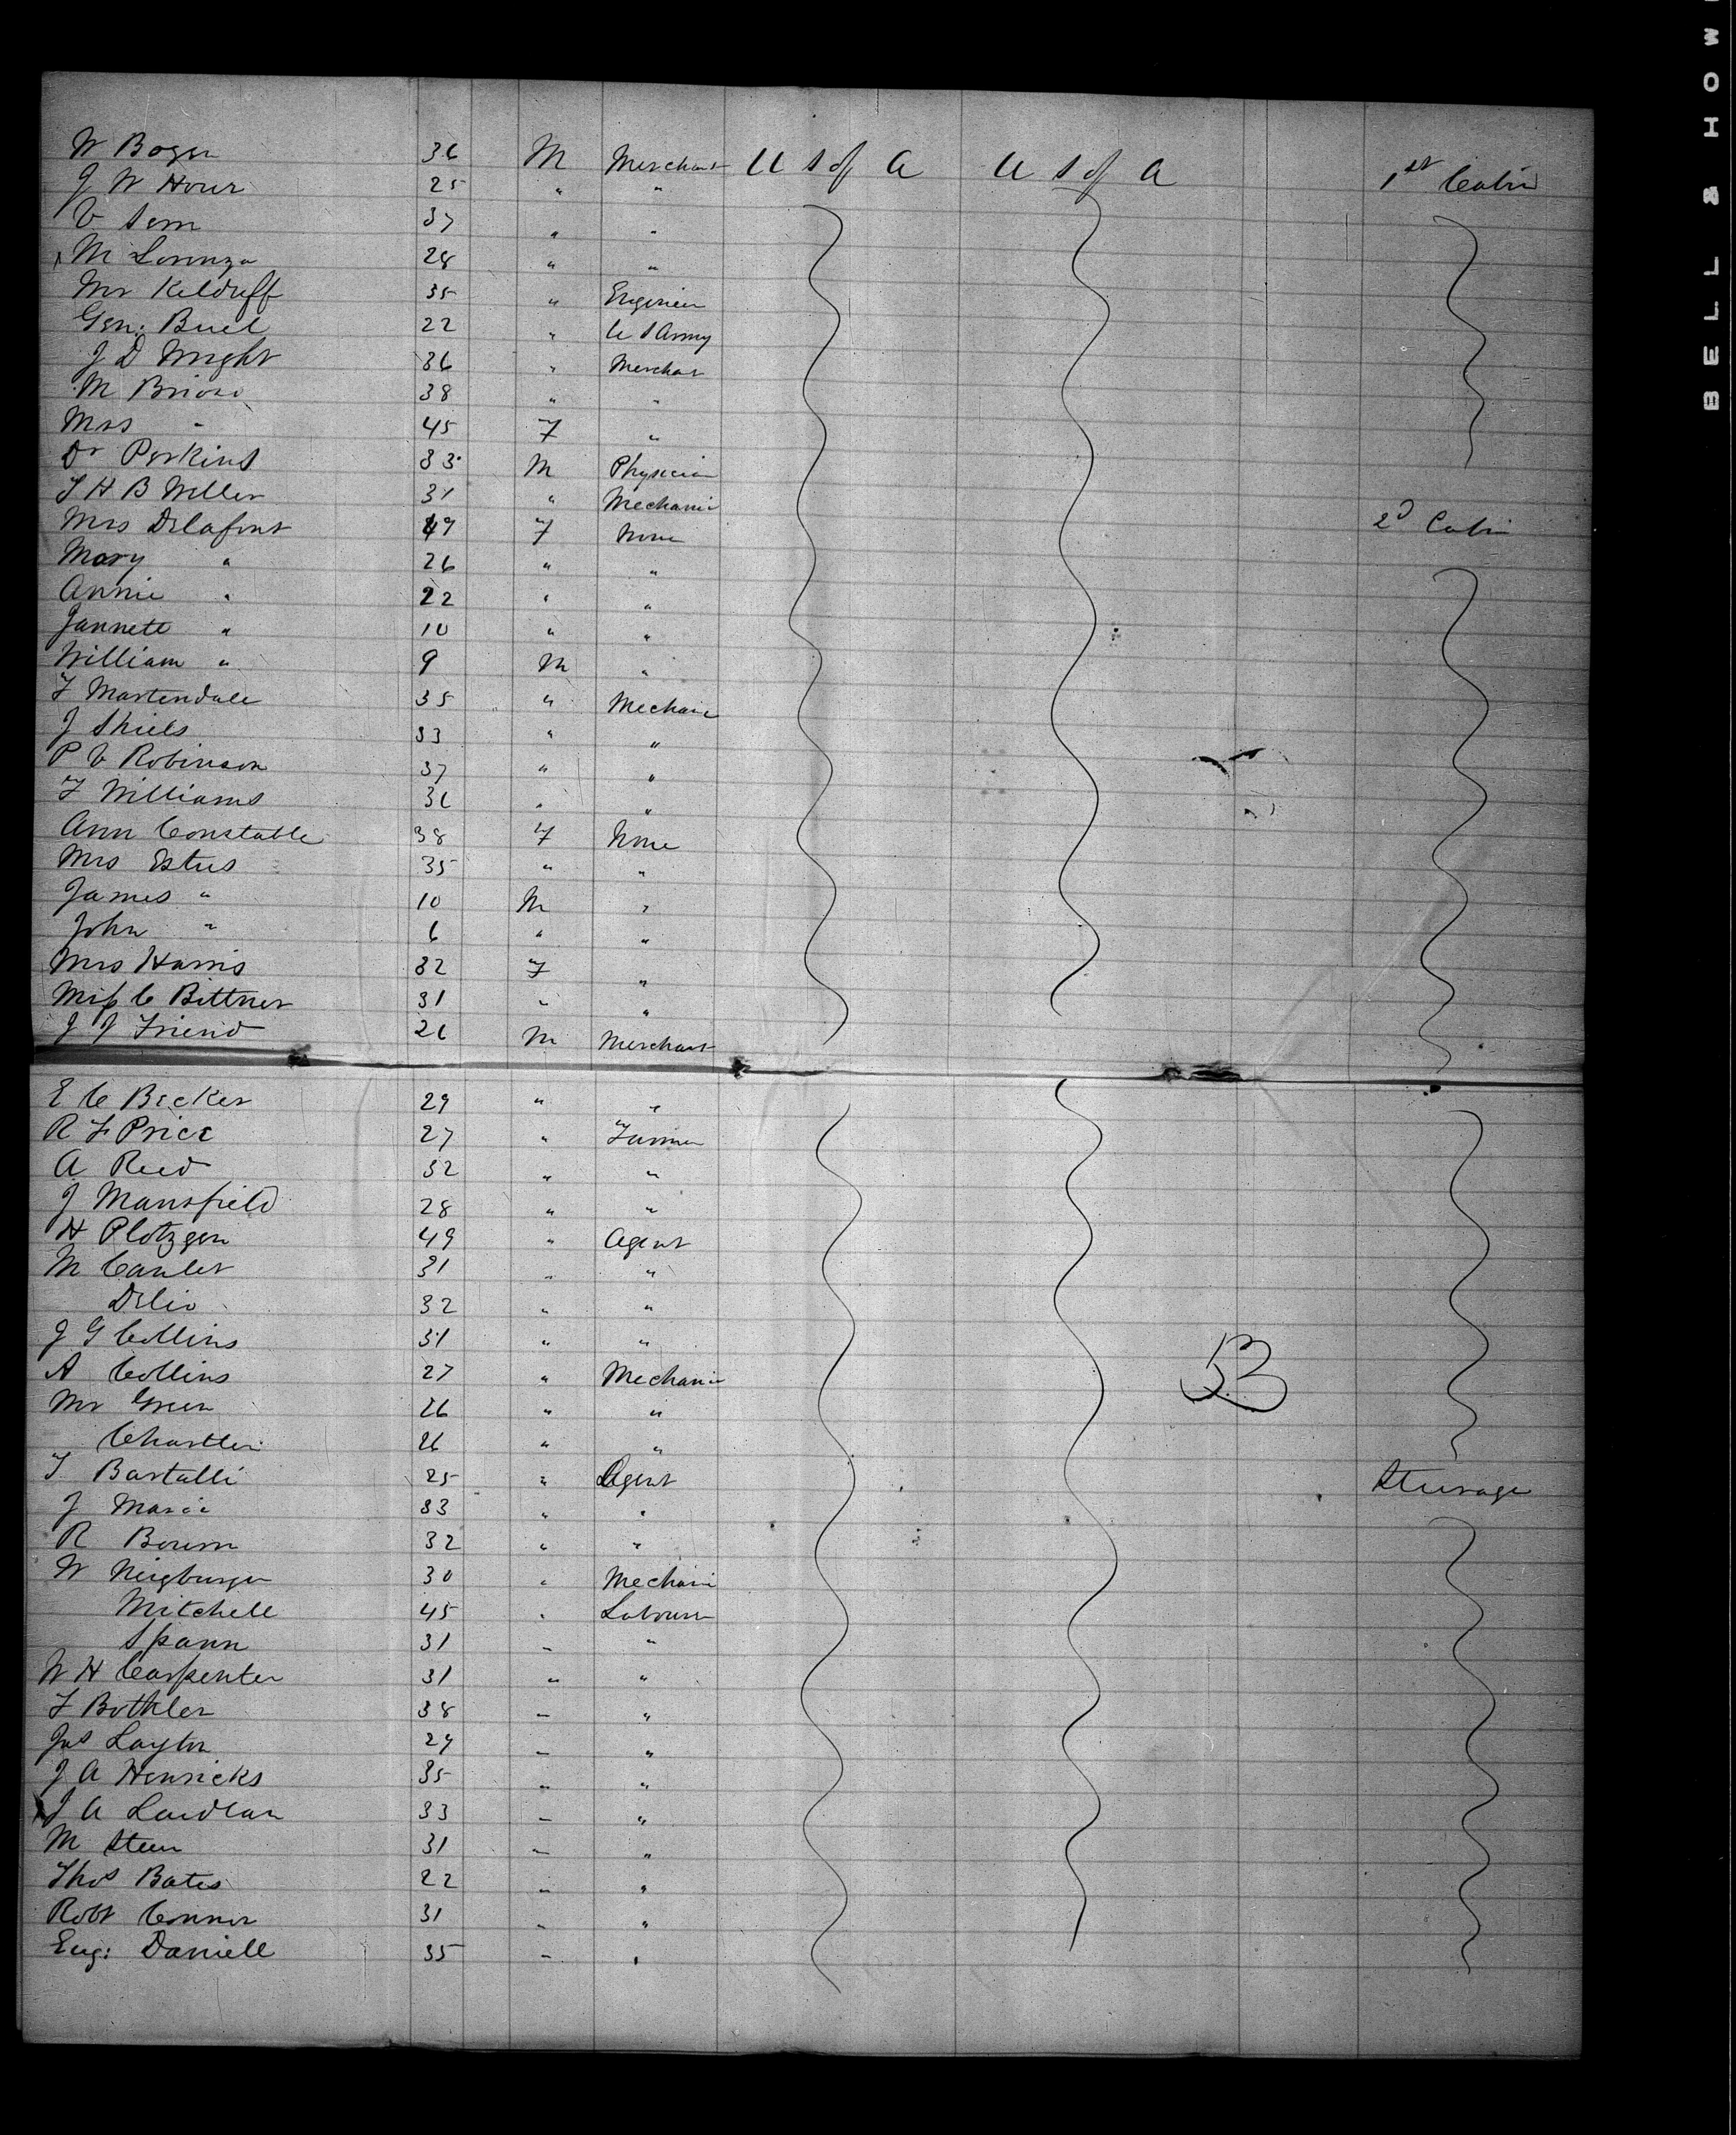 W Boger 36 M Merchant U S of A U S of A 1st Cabin
J W Hour 25 " "
V Sem 37 " "
M Lorenzo 28 " "
Mr Kelduff 35 " Engineer
Gen: Buel 22 " U S Army
J D Wright 36 " Merchat
M Brioso 38 " "
Mrs " 45 F "
Dr Perkins 33 M Physician
T H B Weller 31 " Mechanic
Mrs Delafont 49 F None 2d Cabin
Mary " 26 " "
Annie " 22 " "
Jannete " 10 " "
William " 9 M "
F Martendale 35 " Mechanic
J Shiels 33 " "
P V Robinson 37 " "
F Williams 36 " "
Ann Constable 38 F None
Mrs Estus 35 " "
James " 10 M "
John " 6 " "
Mrs Harris 32 F "
Miss C Bittner 31 " "
J J Friend 26 M Merchant
E C Becker 29 " "
R F Price 27 " Farmer
A Reed 32 " "
J Mansfield 28 " "
H Plotzgen 49 " Agent
M Cauler 31 " "
Delio 32 " "
J G Collins 31 " "
A Collins 27 " Mechanic
Mr Green 26 " "
Chartler 26 " "
T Bartalli 25 " Agent Steerage
J Marie 33 " "
R Bourn 32 " "
W Neigburger 30 " Mechanic
Mitchell 45 " Labourer
Spann 31 " "
W H Carpenter 31 " "
F Bothler 38 " "
Jas Layton 29 " "
J A Henricks 35 " "
J A Laidlaw 33 " "
M Steen 31 " "
Thos Bates 22 " "
Robt Connor 31 " "
Eug: Daniell 35 " "
53
BELL & HOW